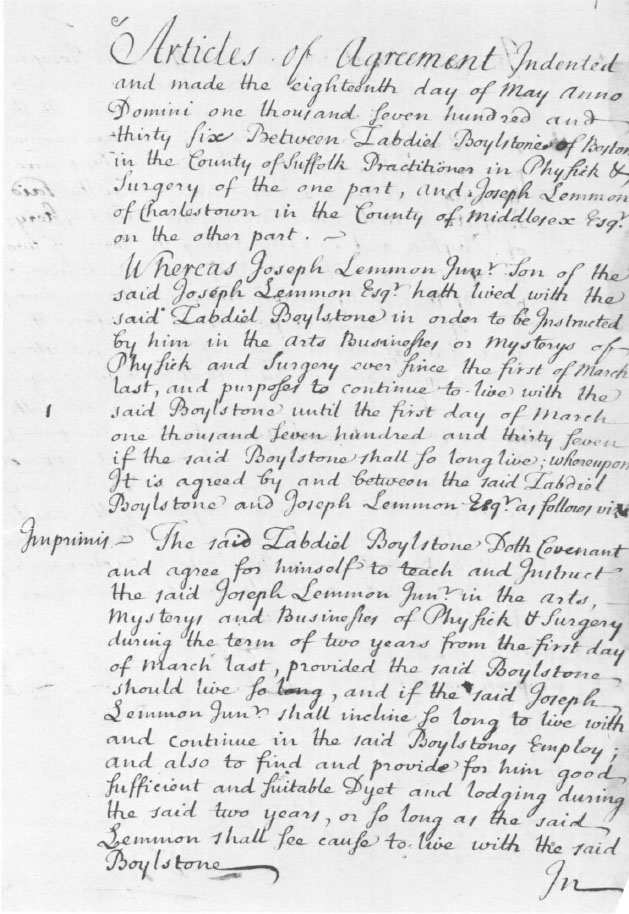 Articles of Agreement Indented
and made the eighteenth day of May Anno
Domini one thousand seven hundred and
thirty six Between Zabdiel Boylstone of Boston
in the County of Suffolk Practitioner in Physick &
Surgery of the one part, and Joseph Lemmon
of Charlestown in the County of Middlesex Esqr.
on the other part. –
Whereas Joseph Lemmon Junr. Son of the
said Joseph Lemmon Esqr. hath lived with the
said Zabdiel Boylstone in order to be Instructed
by him in the Arts Businesses or Mysterys of
Physick and Surgery ever since the first of March
last, and purposes to continue to live with the
1 said Boylstone until the first day of March
one thousand seven hundred and thirty seven
if the said Boylstone shall so long live; whereupon
It is agreed by and between the said Zabdiel
Boylstone and Joseph Lemmon Esqr. as follows viz
Imprimis – The said Zabdiel Boylstone Doth Covenant
and agree for himself to teach and Instruct
the said Joseph Lemmon Junr. in the arts,
Mysterys and Businesses of Physick & Surgery
during the term of two years from the first day
of March last, provided the said Boylstone
should live so long, and if the said Joseph
Lemmon Junr. shall incline so long to live with
and continue in the said Boylstones Employ;
and also to find and provide for him good
sufficient and suitable Dyet and lodging during
the said two years, or so long as the said
Lemmon shall see cause to live with the said
Boylstone
In